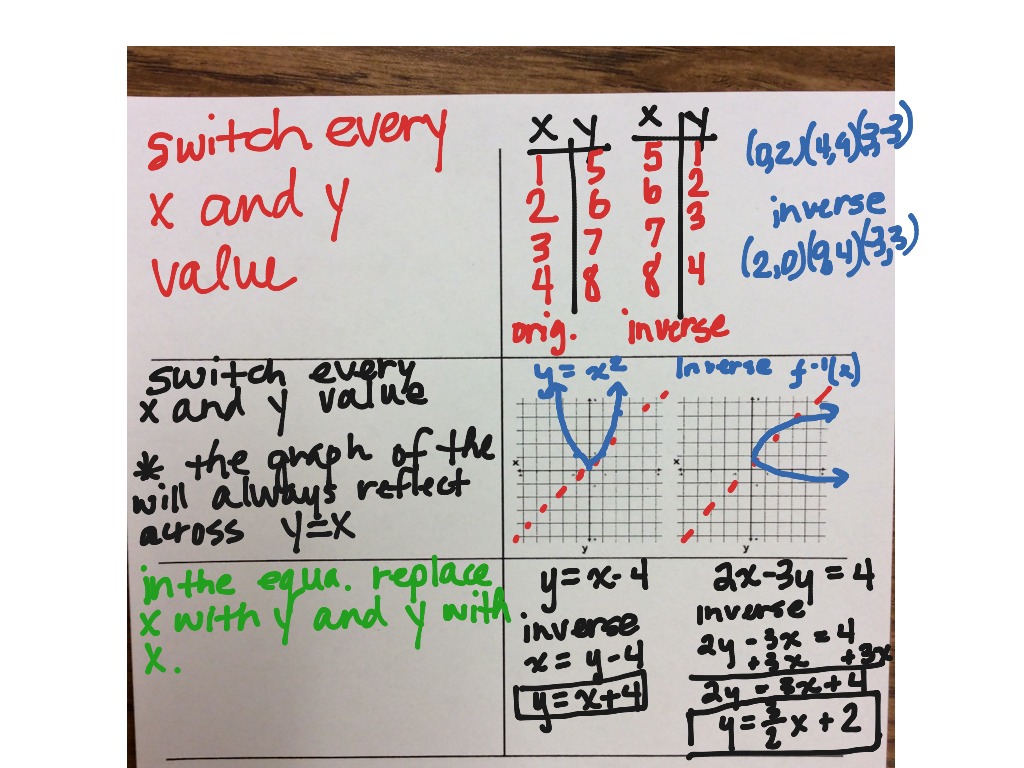 switch every
x and y
value
x y
1 5
2 6
3 7
4 8
orig.
x y
5 1
6 2
7 3
8 4
inverse
(0,2)(4,9)(3,-3)
inverse
(2,0)(9,4)(-3,3)
switch every
x and y value
* the graph of the
will always reflect
across y=x
y = x²
x
y
Inverse f-1(x)
x
y
in the equa. replace
x with y and y with
x.
y = x - 4
inverse
x = y - 4
y = x + 4
2x - 3y = 4
inverse
2y - 3x = 4
+3x +3x
2y = 3x + 4
y = 3/2 x + 2